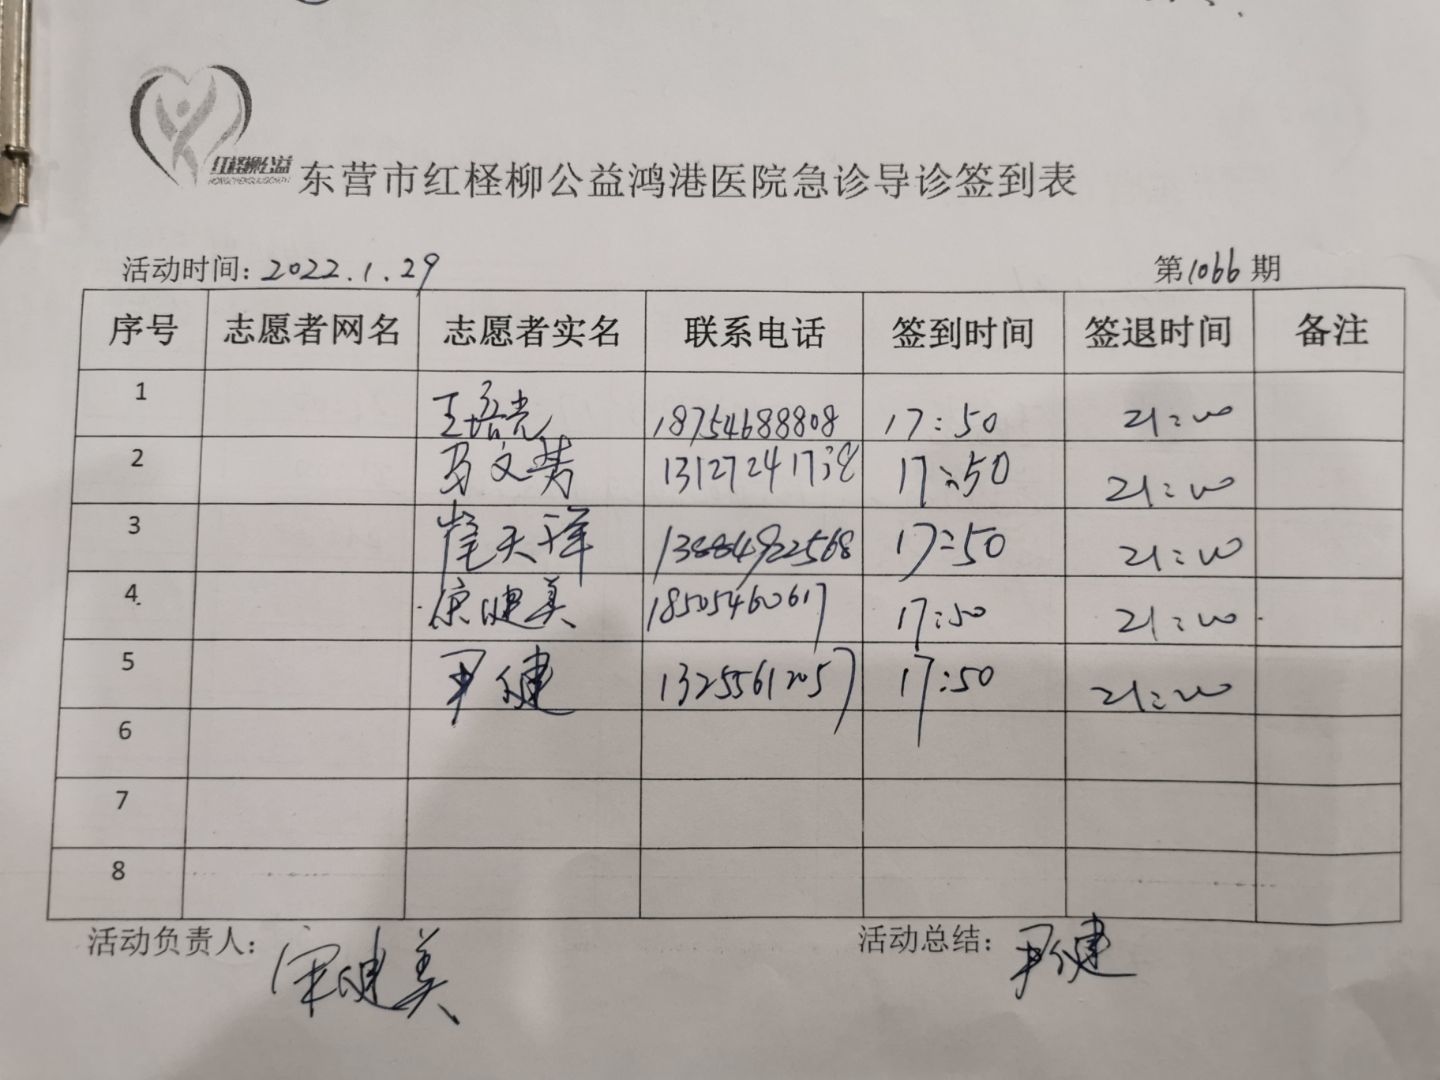 红柽柳公益
东营市红柽柳公益鸿港医院急诊导诊签到表
活动时间：2022.1.29 第1066期
序号 志愿者网名 志愿者实名 联系电话 签到时间 签退时间 备注
1 王培光 18754688808 17:50 21:00
2 马文 131272417 17:50 21:00
3 崔天祥 13884922568 17:50 21:00
4 康健美 18505460617 17:50 21:00
5 尹健 13255612057 17:50 21:00
6
7
8
活动负责人： 健美 活动总结：尹健